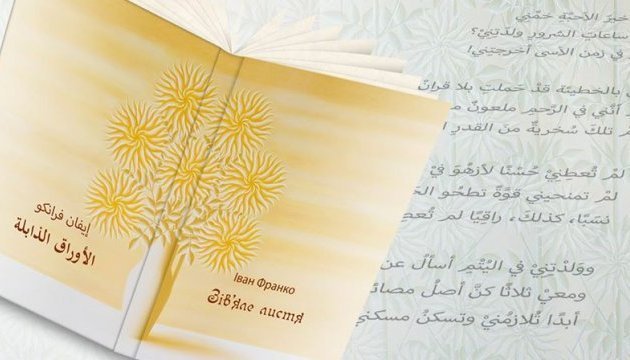 إيڤان فرانكو
الأوراق الذابلة
Іван Франко
Зів'яле листя
خبزَ الأحبّة حمّني
ساعاتِ الشرورِ ولدَتِنِيْ؟
في زمن الأسى أخرجتِني!
بالخطيئة قدْ حَملتِ بلا قرانْ
أنّني في الرَّحِمِ ملعونٌ
تلكَ سُخريةٌ منَ القدرِ
لمْ تُعطِنِيْ حُسْنًا لأزهُوَ فيْ
لمْ تمنحيني قوَّةً تطحُو
نسَبًا، كذلكَ، راقِيًا لم
ووَلدْتِنِيْ في اليُتْمِ أسألُ عن
ومعيْ ثلاثًا كنَّ أصلُ
أبدًا تُلازمُنِيْ وتسكنُ